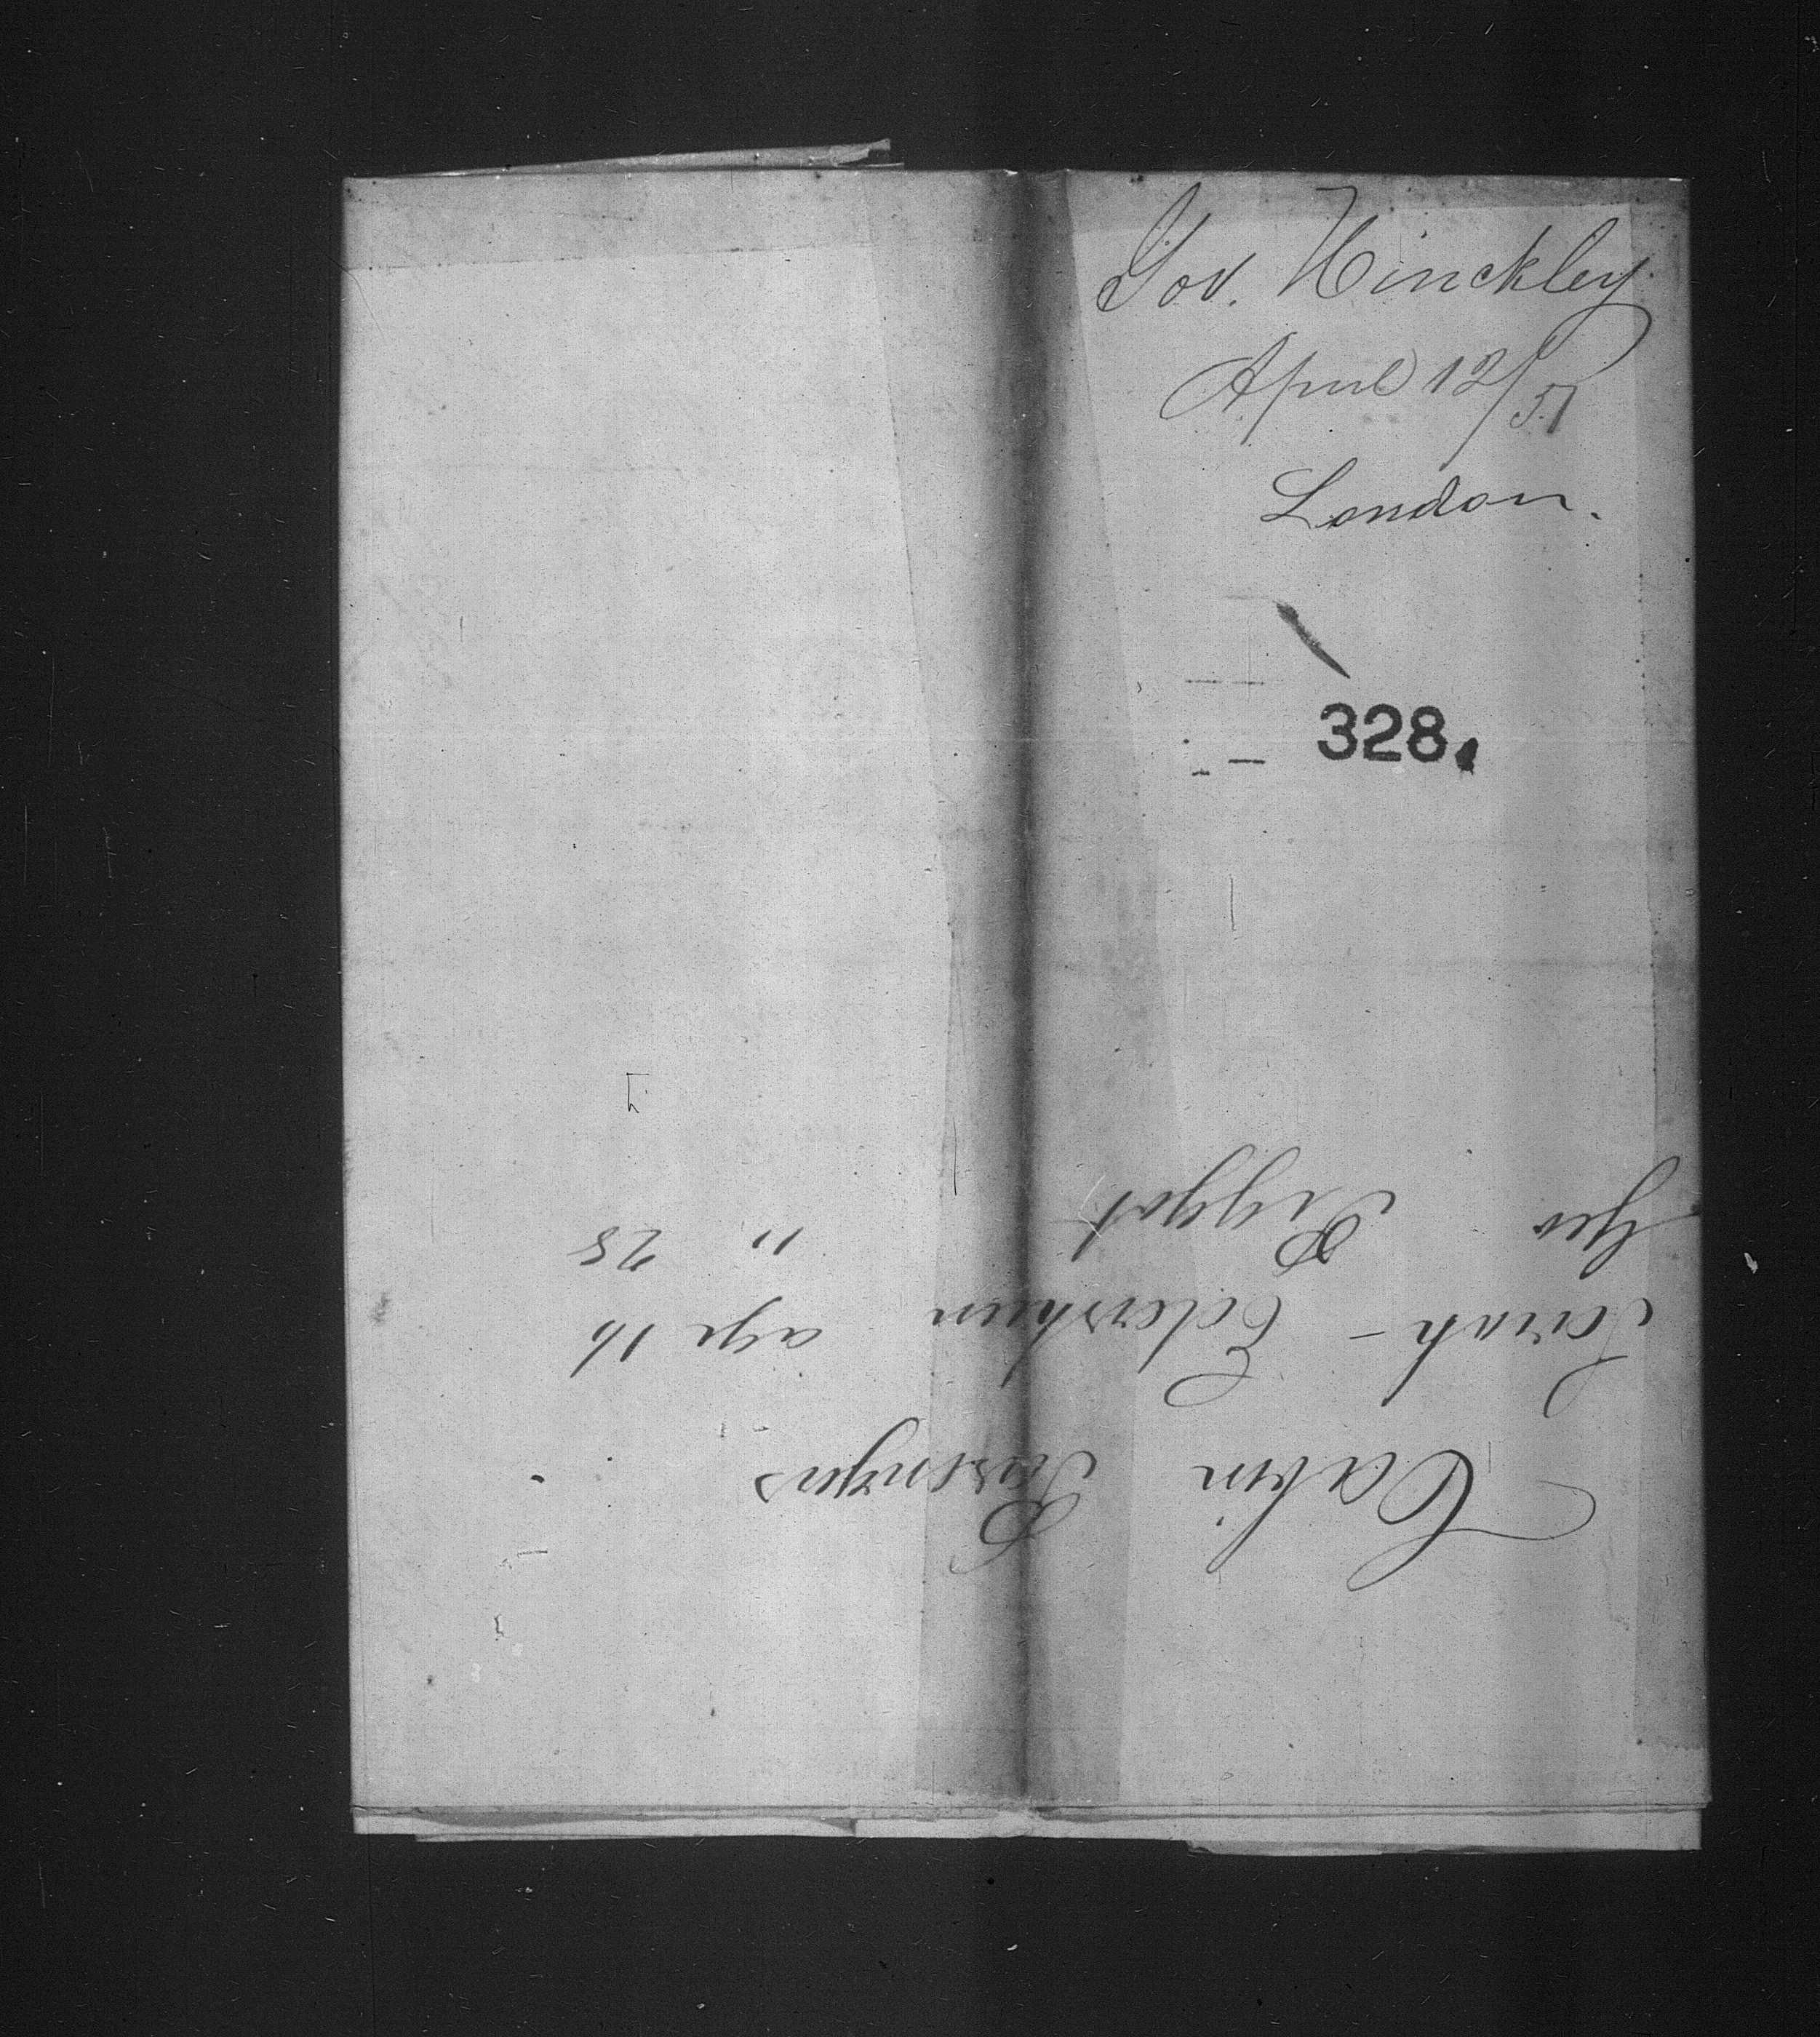 Gov. Hinckley
April 12/51
London.
328.
Cabin Passengers
Sarah - Edershein age 16
Geo Piggot " 28